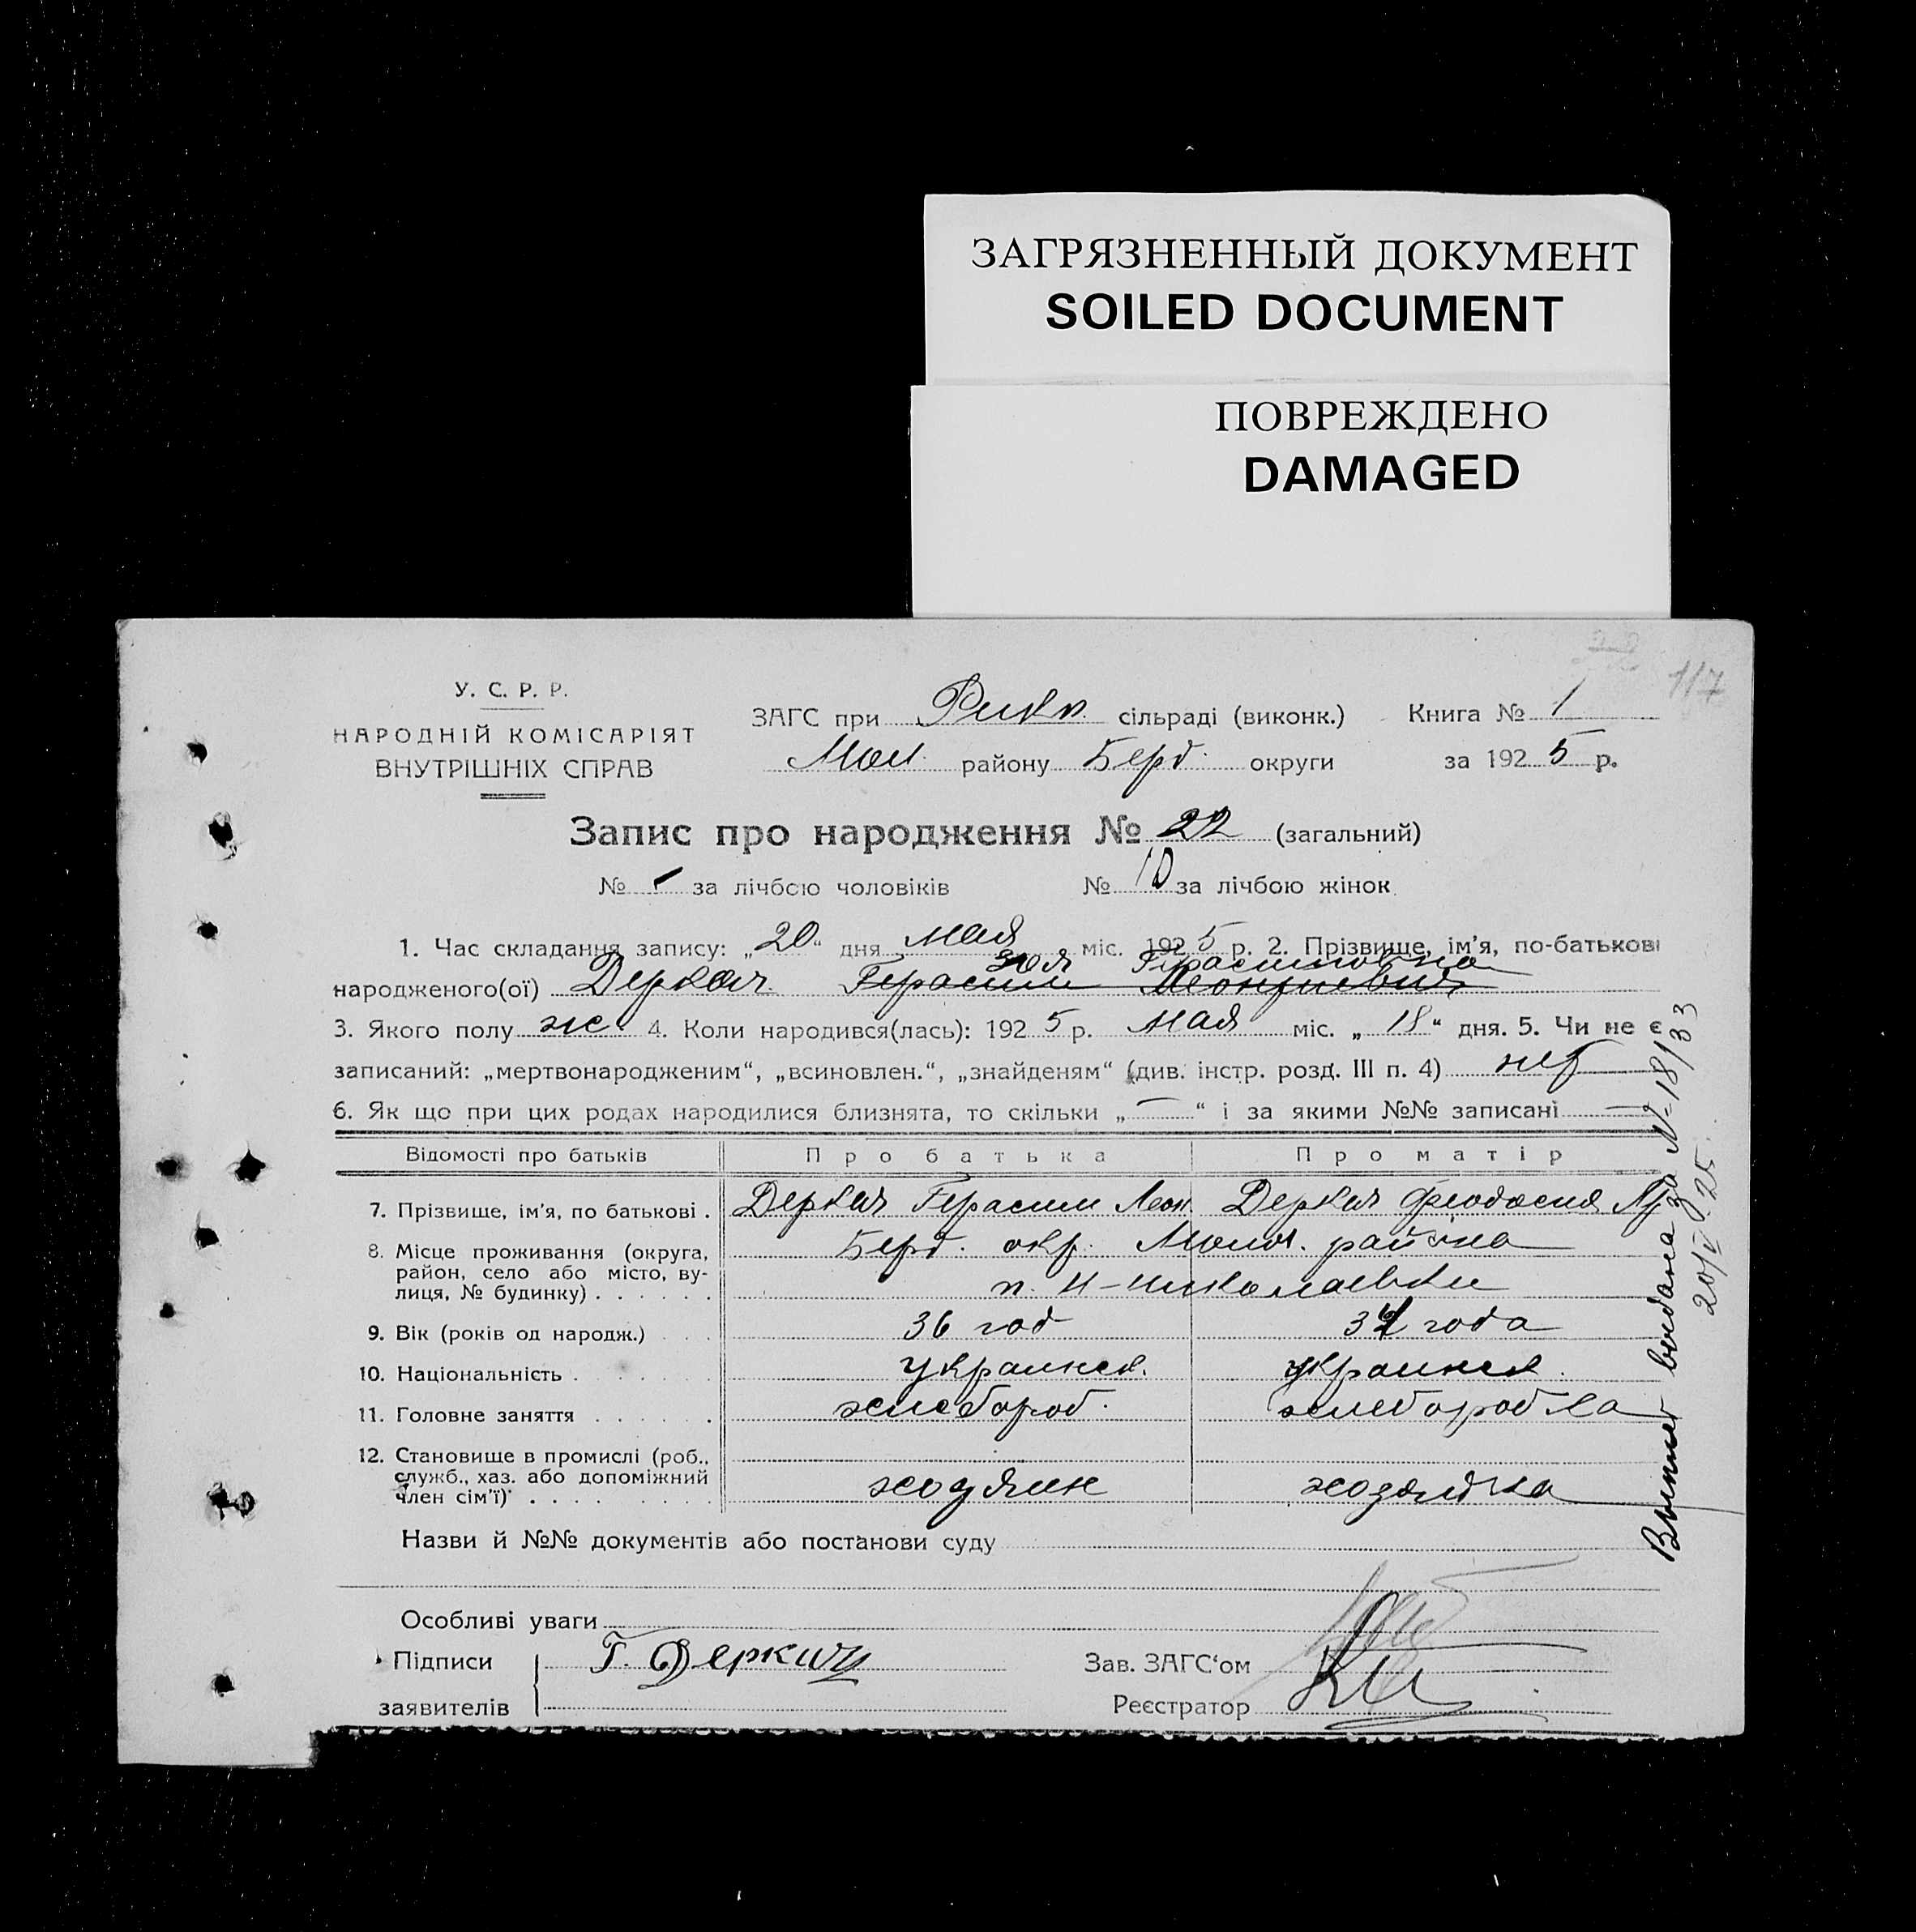 ЗАГРЯЗНЕННЫЙ ДОКУМЕНТ
SOILED DOCUMENT
ПОВРЕЖДЕНО
DAMAGED
117
У. С. Р. Р.
НАРОДНІЙ КОМІСАРІЯТ
ВНУТРІШНІХ СПРАВ
ЗАГС при Рикп. сільраді (виконк.) Книга № 1
Мол. району Берд. округи за 1925 р.
Запис про народження № 22 (загальний)
№ за лічбою чоловіків № 10 за лічбою жінок
1. Час складання запису: „20“ дня мая міс. 1925 р. 2. Прізвище, ім’я, по-батькові
Зоя Герасимовна
народженого(ої) Деркач Герасим Леонтиевич
3. Якого полу ж. 4. Коли народився(лась): 1925 р. мая міс. „18“ дня. 5. Чи не є
записаний: „мертвонародженим“, „всиновлен.“, „знайденям“ (див. інстр. розд. III п. 4) нет
6. Як що при цих родах народилися близнята, то скільки „—“ і за якими №№ записані —
Відомості про батьків Про батька Про матір
7. Прізвище, ім’я, по батькові . Деркач Герасим Леон. Деркач Феодосия
8. Місце проживання (округа, район, село або місто, вулиця, № будинку) . . . . . . Берд. окр. Молоч. района
п. Н-Николаевки
9. Вік (років од народж.) . . . 36 год 34 года
10. Національність . . . . . . украинск. украинск.
11. Головне заняття . . . . . . хлебороб. хлеборобка
12. Становище в промислі (роб., служб., хаз. або допоміжний член сім’ї) . . . . . . . . хозяин хозяйка
Назви й №№ документів або постанови суду
Особливі уваги
Підписи Г. Деркач Зав. ЗАГС‘ом
заявителів Реєстратор
Выпись выдана за № 18/33
20/V-25.